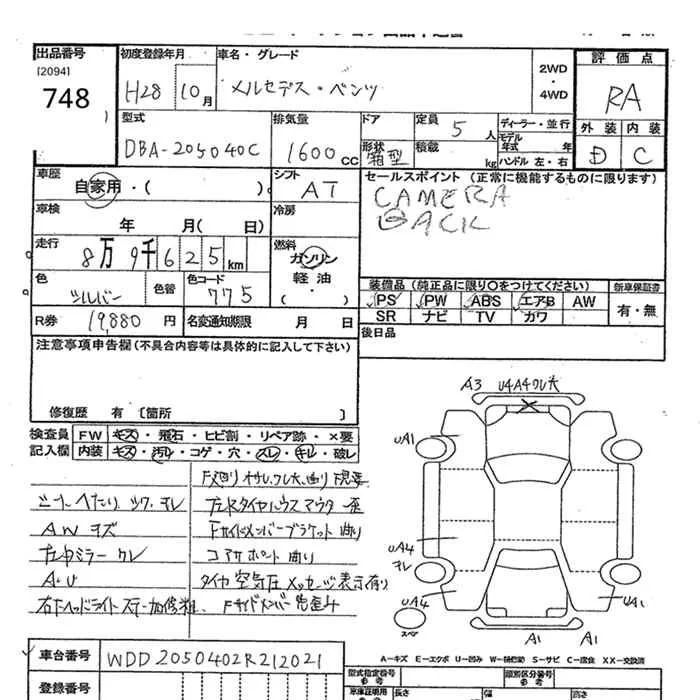 出品番号
[2094]
748
初度登録年月
H28 10月
車名・グレード
メルセデス・ベンツ
2WD
・
4WD
評価点
RA
外装 内装
D C
型式
DBA-205040C
排気量
1600cc
ドア
形状
箱型
定員
5人
積載
kg
ディーラー・並行
モデル
年式 年
ハンドル 左・右
車歴
自家用・( )
シフト
AT
セールスポイント (正常に機能するものに限ります)
CAMERA
BACK
車検
年 月( 日)
冷房
走行
8万9千625km
燃料
ガソリン
軽油
( )
色
シルバー
色替
色コード
775
装備品 (純正品に限り〇をつけてください)
新車保証書
PS PW ABS エアB AW
有・無
SR ナビ TV カワ
R券 19,880円
名変通知期限 月 日
後日品
注意事項申告欄 (不具合内容等は具体的に記入して下さい)
修復歴 有 [箇所 ]
検査員 FW キズ・飛石・ヒビ割・リペア跡・×要
記入欄 内装 キズ・汚れ・コゲ・穴・スレ・キレ・破レ
シートヘたり、シワ、スレ
AWキズ
左ドアミラー クレ
A・U
右下ヘッドライトステー加修粗
左Rタイヤハウスアウター歪
Fサイドメンバーブラケット曲り
コアサポート曲り
タイヤ空気圧メッセージ表示有り
A3 U4A4クレ大
UA1
UA4
UA4
スペア
A1
A1
UA1
A-キズ E-エクボ U-凹み W-補修跡 S-サビ C-腐食 XX-交換済
車台番号 WDD2050402R212021
登録番号
型式指定番号
参考
類別区分番号
参考
車庫証明用
長さ
幅
高さ